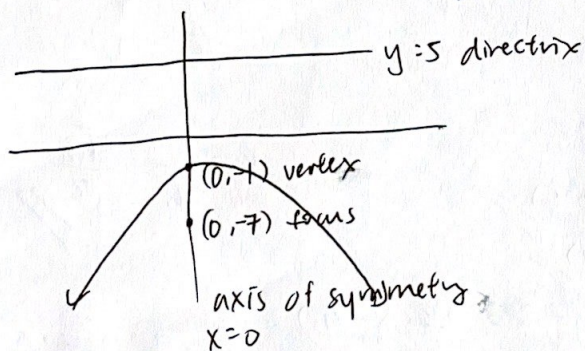 y=5 directrix
(0,-1) vertex
(0,-7) focus
axis of symmetry
x=0